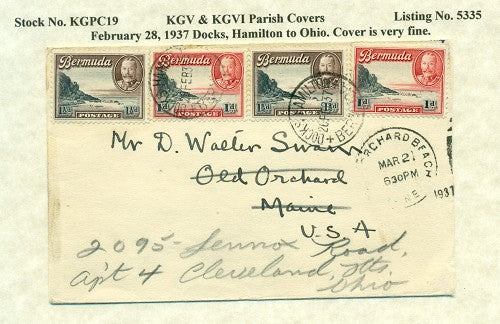 Stock No. KGPC19 KGV & KGVI Parish Covers Listing No. 5335
February 28, 1937 Docks, Hamilton to Ohio. Cover is very fine.
Bermuda Bermuda Bermuda Bermuda
1½d 1d 1½d 1d
POSTAGE POSTAGE POSTAGE POSTAGE
Mr D. Walter Swan
Old Orchard
Maine
U.S.A
ORCHARD BEACH
MAR 2
6 30 PM
1937
2095 Lennox Road,
Apt 4 Cleveland, Hts.
Ohio